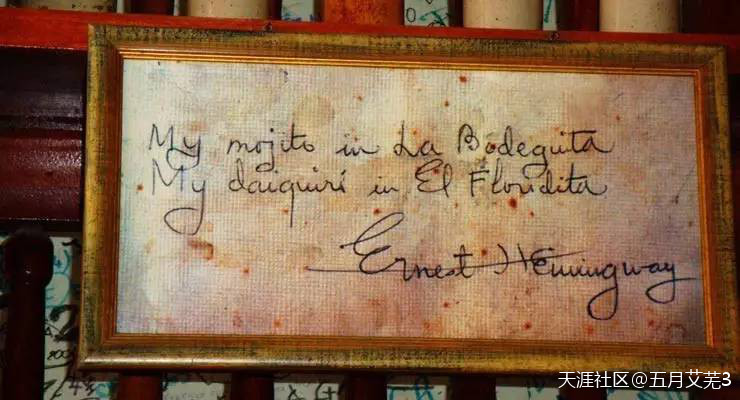 My mojito in La Bodeguita
My daiquirí in El Floridita
Ernest Hemingway
天涯社区@五月艾芜3